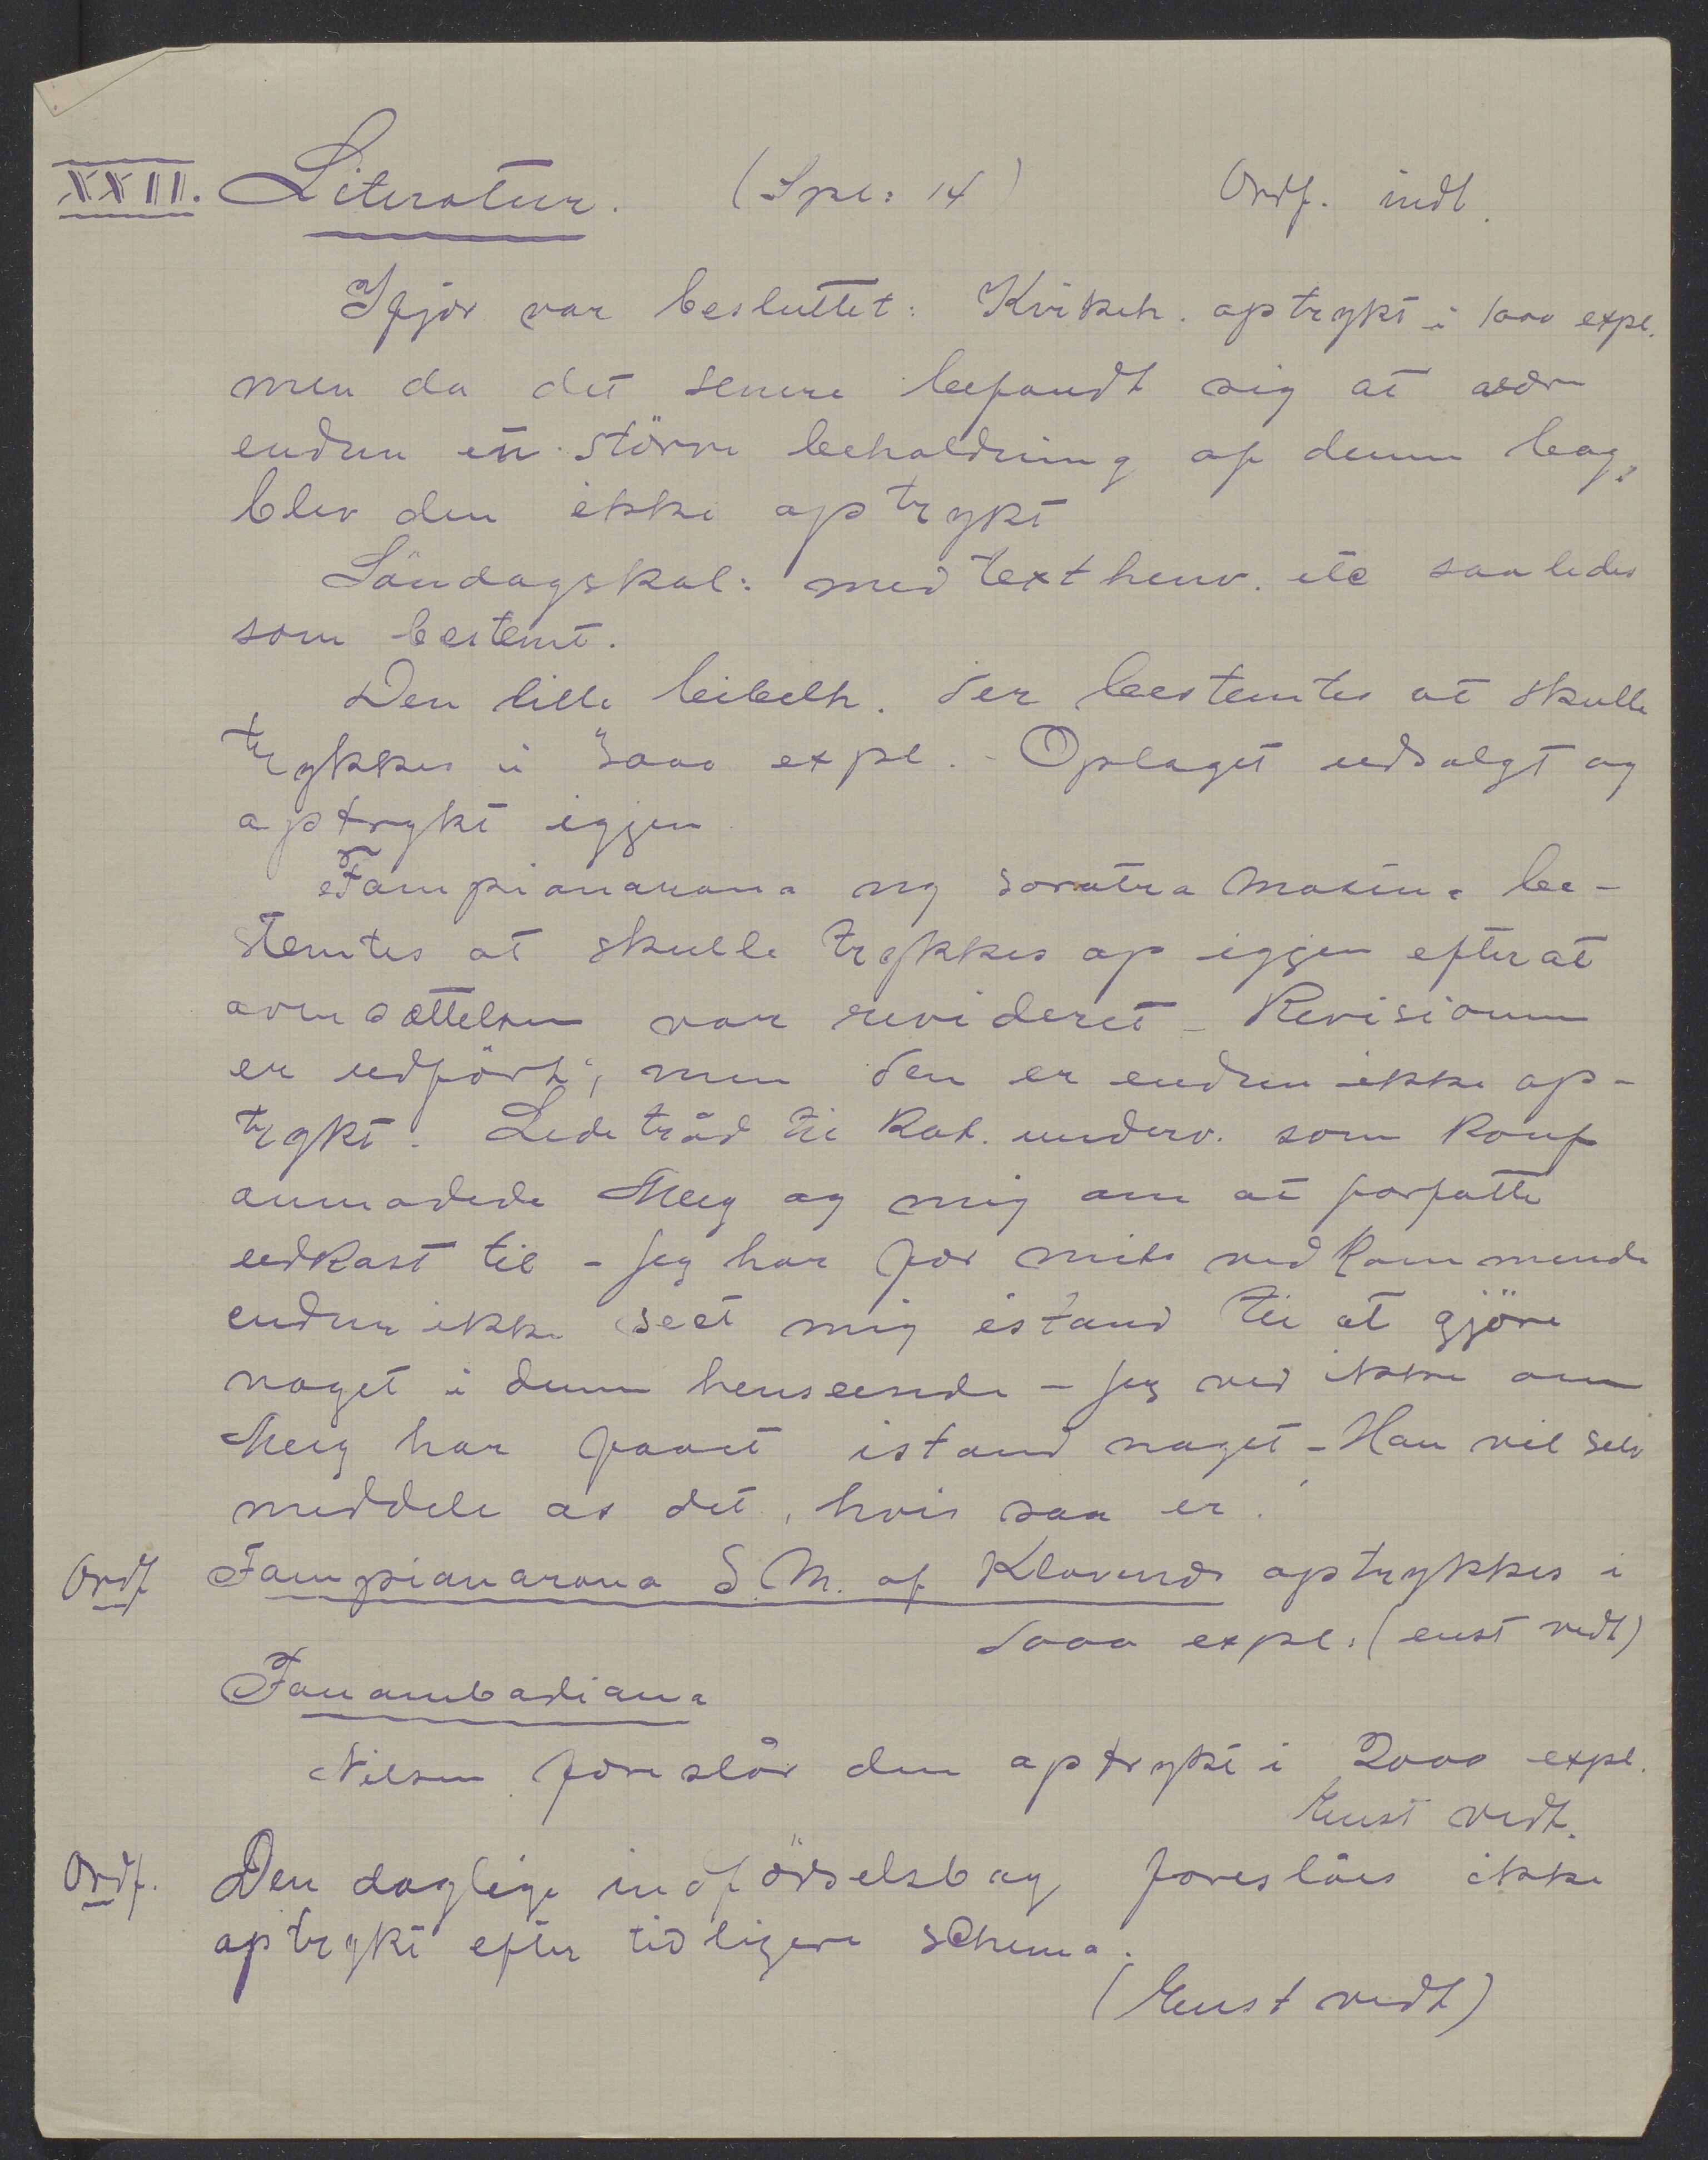 XXII. Literatur. (Spl: 14) Ordf. indl.
Ifjor var besluttet: Kirkeh. optrykt i 1000 expl.
men da det senere befandt sig at være
endnu en större beholdning af denne bog,
blev den ikke optrykt
Söndagskal: med texthenv. etc saaledes
som bestemt.
Den lille bibelh. der bestemtes at skulle
trykkes i 3000 expl. - Oplaget udsolgt og
optrykt igjen
Fampianarana ny soratra masina be-
stemtes at skulle trykkes op igjen efterat
oversættelsen var revideret - Revisionen
er udfört, men den er endnu ikke op-
trykt. Ledetråd til kat. underv. som Konf
anmodede Meeg og mig om at forfatte
udkast til - jeg har for mit vedkommende
endnu ikke seet mig istand til at gjöre
noget i denne henseende - jeg ved ikke om
Meeg har faaet istand noget - Han vil selv
meddele os det, hvis saa er.
Ordf Fampianarana S. M. af Klaveness optrykkes i
5000 expl: (enst vedt)
Fanambadiana
Nilsen foreslår den optrykt i 2000 expl.
Enst vedt.
Ordf. Den daglige indförselsbog foreslåes ikke
optrykt efter tidligere schema.
(Enst vedt)